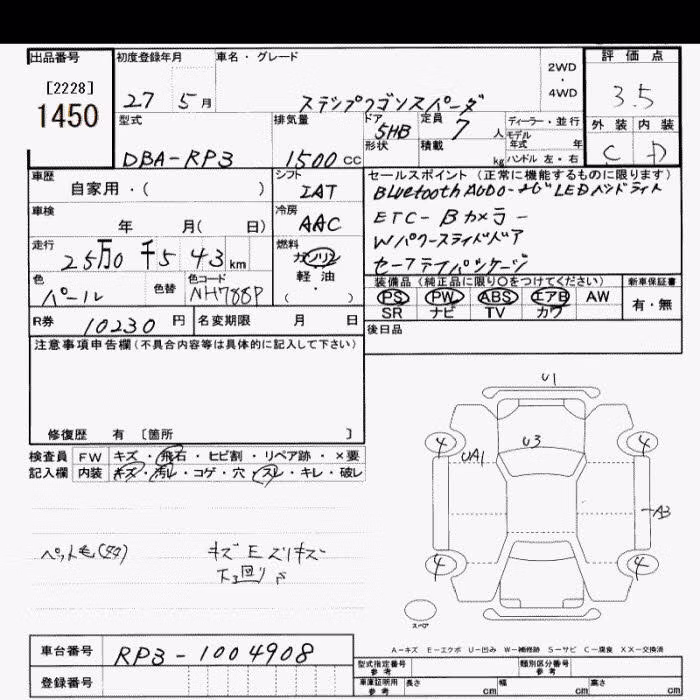 出品番号 初度登録年月 車名・グレード 評価点
[2228]
1450
27 5月 ステップワゴンスパーダ 2WD・4WD 3.5
型式 排気量 ドア 定員 ディーラー・並行 外装 内装
DBA-RP3 1500cc 5HB 7人 モデル年式 年 C D
形状 積載 kg ハンドル 左・右
車歴 シフト セールスポイント(正常に機能するものに限ります)
自家用・( ) IAT Bluetooth AUDO-ナビ LEDヘッドライト
車検 冷房 ETC-Bカメラ-
年 月( 日) AAC Wパワースライドドア
走行 燃料 セーフティパッケージ
25万0千543km ガソリン
軽油
・( )
色 色替 色コード 装備品(純正品に限り○をつけてください) 新車保証書
パール NH788P PS PW ABS エアB AW 有・無
SR ナビ TV カワ
R券 10230円 名変期限 月 日 後日品
注意事項申告欄(不具合内容等は具体的に記入して下さい)
修復歴 有 〔箇所 〕
検査員 FW キズ・飛石・ヒビ割・リペア跡・×要
記入欄 内装 キズ・汚レ・コゲ・穴・スレ・キレ・破レ
U1
U3
4 4
UA1
A3
4 4
ペット毛 キズEスリキズ
下回りS
スペア
A−キズ E−エクボ U−凹み W−補修跡 S−サビ C−腐食 XX−交換済
車台番号 RP3-1004908
登録番号
型式指定番号 参考 類別区分番号 参考
車庫証明用 参考 長さ cm 幅 cm 高さ cm